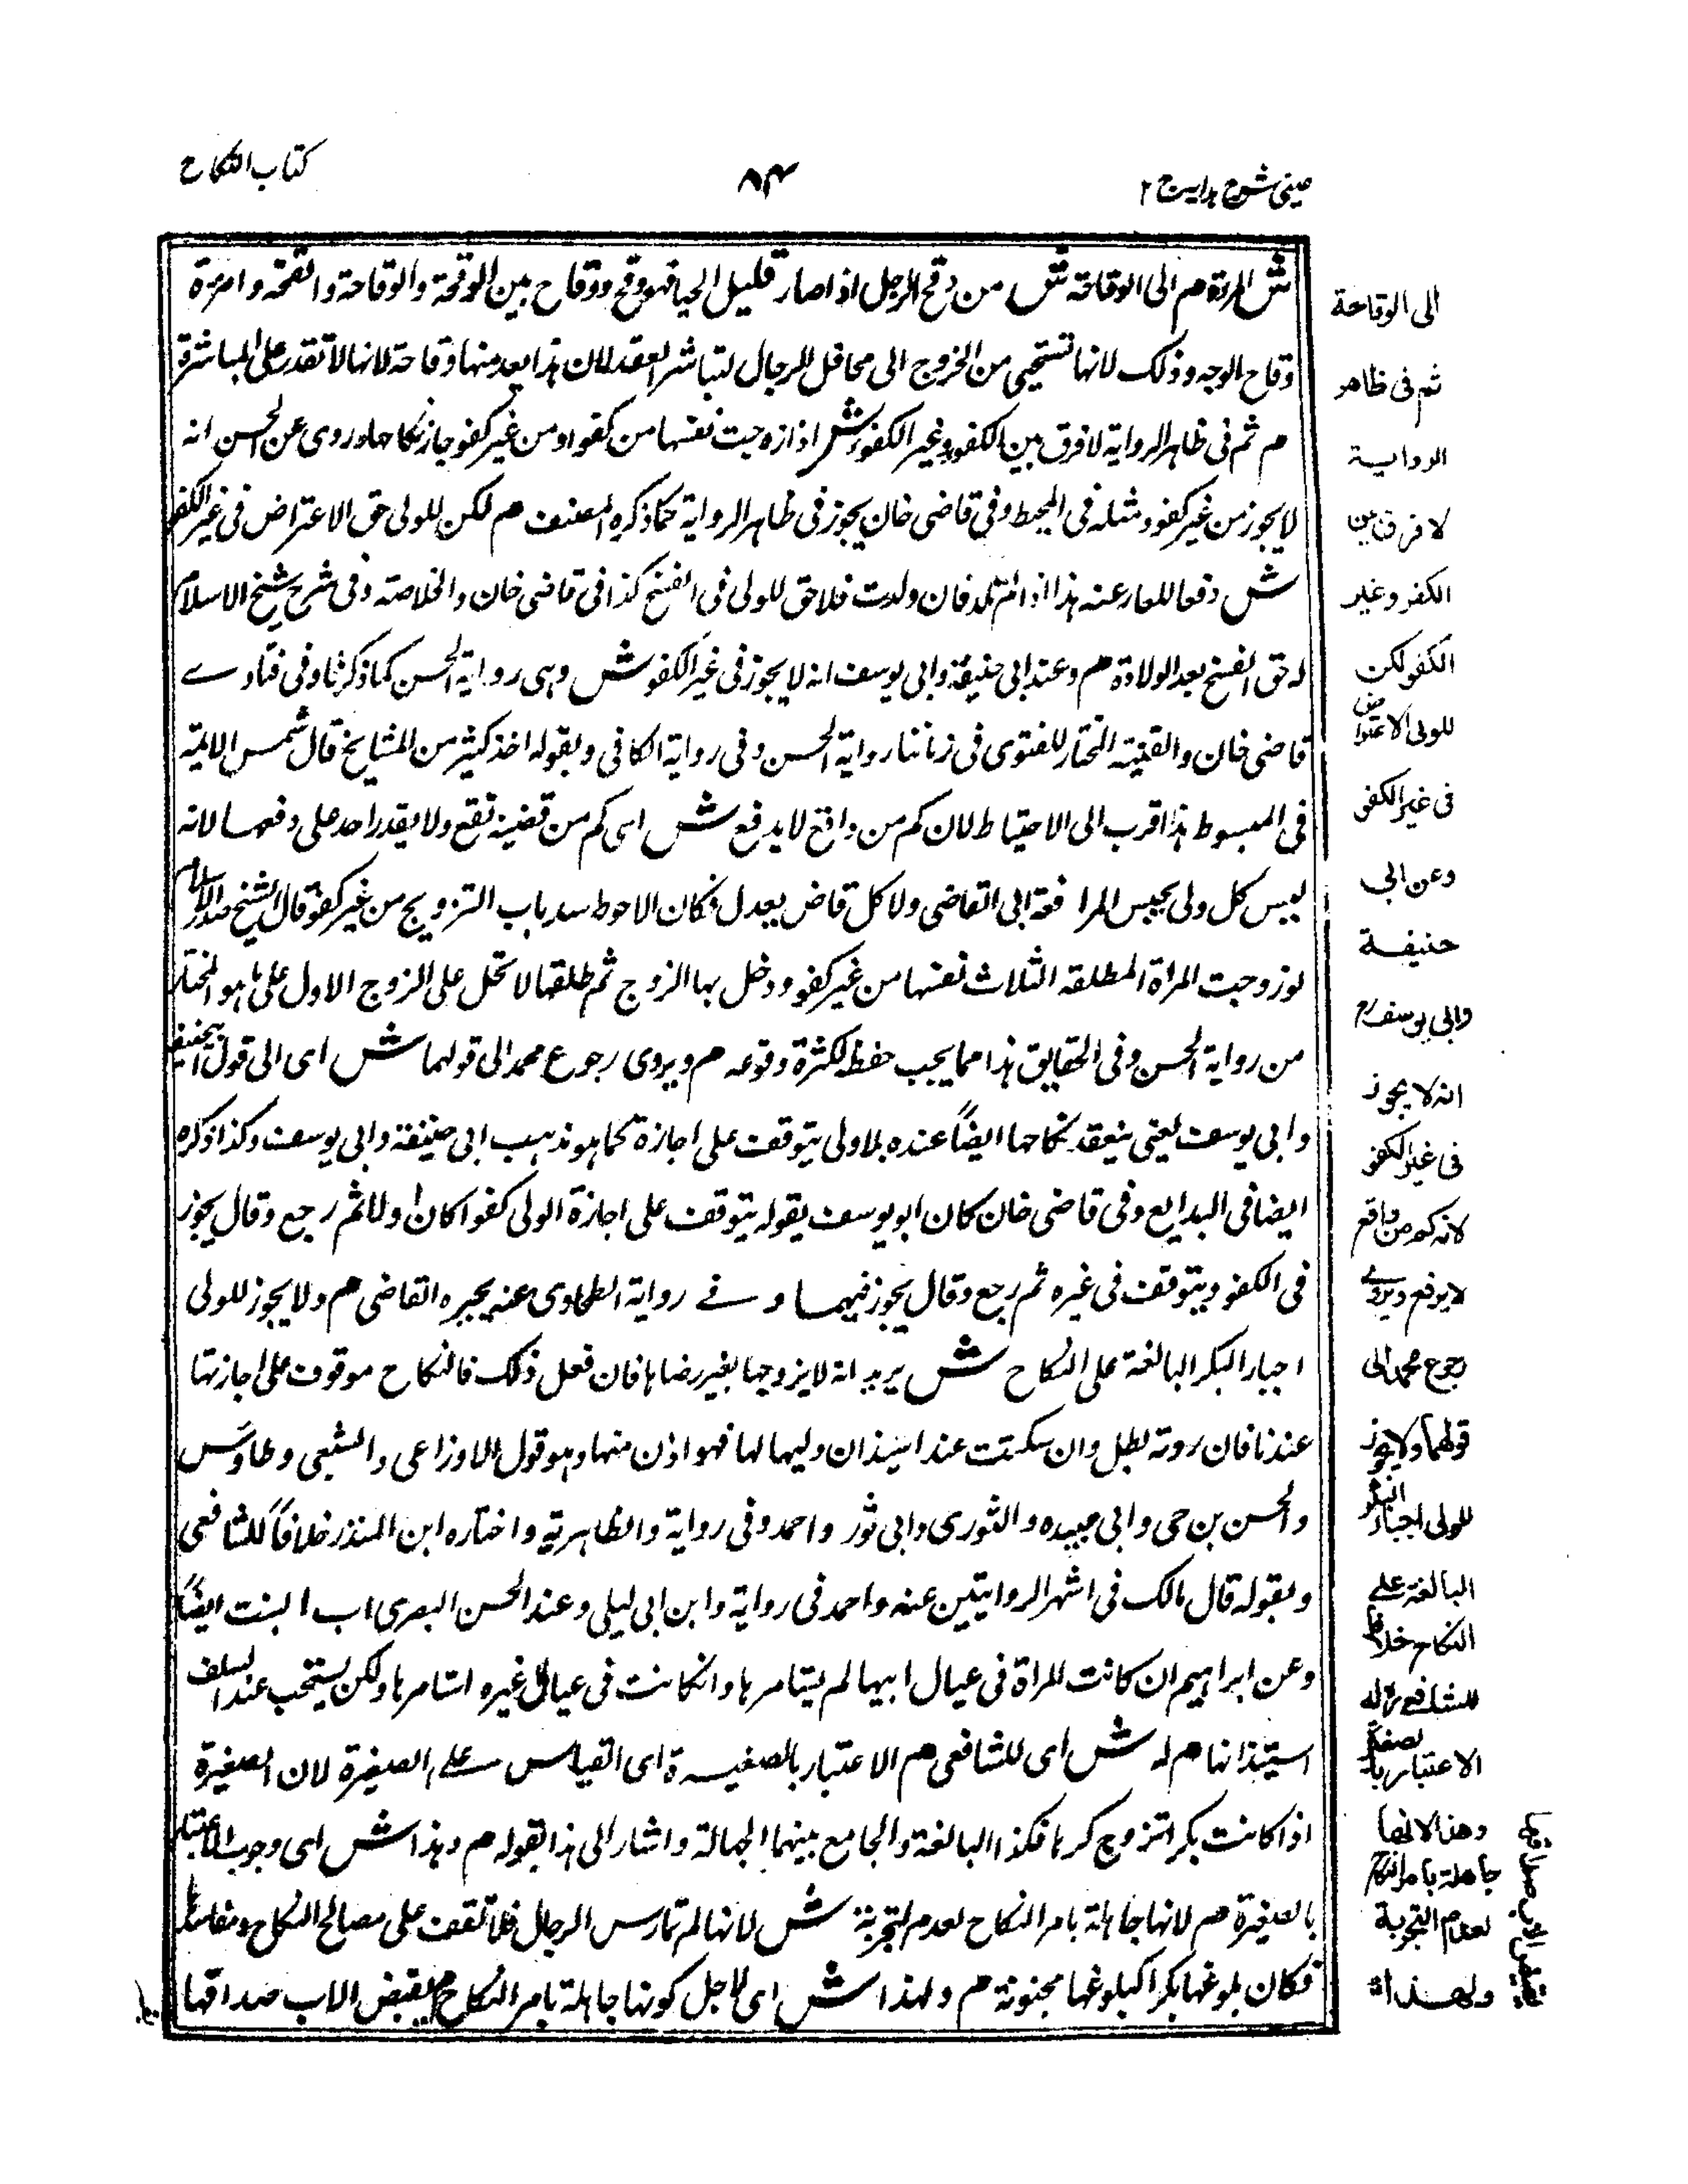 عینی شرح ہدایہ ج ۲
۸۴
کتاب النکاح
ش المرأة م الى الوقاحة ش من وقح الرجل اذا صار قليل الحيا فهو وقح ووقاح بين الوقحة والوقاحة والقحة وامرءة
وقاح الوجه وذلك لانها تستحيي من الخروج الى محافل الرجال لتباشر العقد لان هذا يعد منها وقاحة لانها لا تقدر على المباشرة
م ثم فى ظاهر الرواية لا فرق بين الكفو وغير الكفو ش اذا زوجت نفسها من كفو او من غير كفو جاز نكاحها وروى عن الحسن انه
لا يجوز من غير كفو ومثله فى المحيط وفى قاضى خان يجوز فى ظاهر الرواية كما ذكره المصنف م لكن للولى حق الاعتراض فى غير الكفو
ش دفعا للعار عنه هذا اذا لم تلد فان ولدت فلا حق للولى فى الفسخ كذا فى قاضى خان والخلاصة وفى شرح شيخ الاسلام
له حق الفسخ بعد الولادة م وعند ابى حنيفة وابى يوسف انه لا يجوز فى غير الكفو ش وهى رواية الحسن كما ذكرنا وفى فتاوے
قاضى خان والقنية المختار للفتوى فى زماننا رواية الحسن وفى رواية الكافى وبقوله اخذ كثير من المشايخ قال شمس الايمة
فى المبسوط هذا اقرب الى الاحتياط لان كم من واقع لا يدفع ش اى كم من قضية تقع ولا يقدر احد على دفعها لانه
ليس كل ولى يحبس المرافعة الى القاضى ولا كل قاض يعدل فكان الاحوط سد باب التزويج من غير كفو قال الشيخ صدر الاسلام
لو زوجت المراة المطلقة الثلاث نفسها من غير كفو ودخل بها الزوج ثم طلقها لا تحل على الزوج الاول على ما هو المختار
من رواية الحسن وفى الحقايق هذا مما يجب حفظه لكثرة وقوعه م ويروى رجوع محمد الى قولهما ش اى الى قول ابى حنيفة
وابى يوسف يعنى ينعقد نكاحها ايضاً عنده بلا ولى يتوقف على اجازة كما هو مذهب ابى حنيفة وابى يوسف وكذا ذكره
ايضا فى البدايع وفى قاضى خان كان ابو يوسف يقوله يتوقف على اجازة الولى كفوا كان اولا ثم رجع وقال يجوز
فى الكفو ويتوقف فى غيره ثم رجع وقال يجوز فيهما و فے رواية الطحاوى عنه يجبره القاضى م ولا يجوز للولى
اجبار البكر البالغة على النكاح ش يريد انه لا يزوجها بغير رضاها فان فعل ذلك فالنكاح موقوف على اجازتها
عندنا فان ردته بطل وان سكتت عند استيذان وليها لها فهو اذن منها وهو قول الاوزاعى والشعبى وطاوس
والحسن بن حى وابى عبيده والثورى وابى ثور واحمد وفى رواية والظاهرية واختاره ابن المنذر خلافاً للشافعى
وبقوله قال مالك فى اشهر الروايتين عنه واحمد فى رواية وابن ابى ليلى وعند الحسن البصرى اب البنت ايضاً
وعن ابراهيم ان كانت المراة فى عيال ابيها لم يستامرها وانكانت فى عيال غيره استامرها ولكن يستحب عند السلف
استيذانها م له ش اى للشافعى م الاعتبار بالصغيرة اى القياس على الصغيرة لان الصغيرة
اذا كانت بكرا تزوج كرها فكذا البالغة والجامع بينهما الجهالة واشار الى هذا بقوله م وهذا ش اى وجوب الاعتبار
بالصغيرة م لانها جاهلة بامر النكاح لعدم التجربة ش لانها لم تمارس الرجال فلا تقف على مصالح النكاح ومفاسده
فكان بلوغها بكرا كبلوغها مجنونة م ولهذا ش اى لاجل كونها جاهلة بامر النكاح م يقبض الاب صداقها
الى الوقاحة
ثم فى ظاهر
الرواية
لا فرق بين
الكفو وغير
الكفو لكن
للولى الاعتراض
فى غير الكفو
وعن ابى
حنيفة
وابى يوسف رح
انه لا يجوز
فى غير الكفو
لانه كم من واقع
لا يرفع ويروے
رجوع محمد الى
قولهما ولا يجوز
للولى اجبار البكر
البالغة على
النكاح خلافا
للشافعے رح له
الاعتبار بالصغيرة
وهذا لانها
جاهلة بامر النكاح
لعدم التجربة
ولهذا
يقبض الاب صداقها